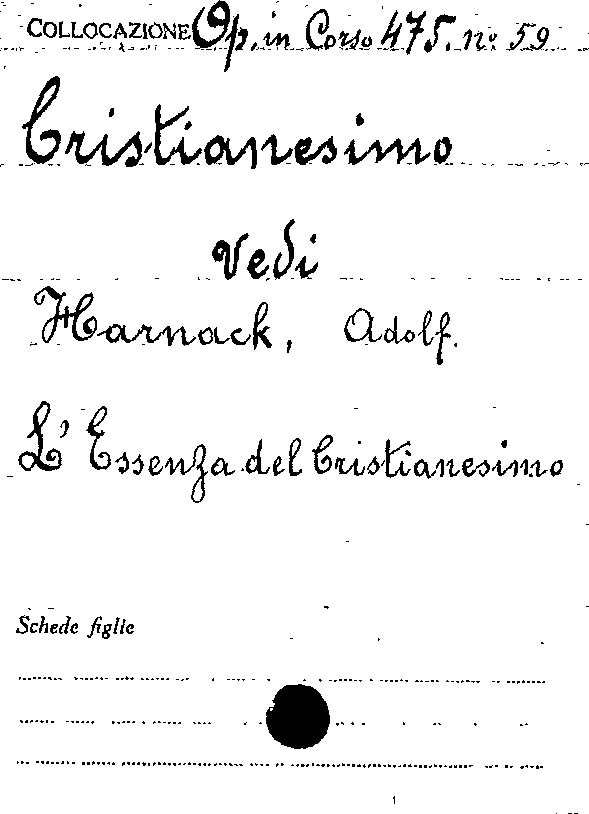 COLLOCAZIONE Op. in Corso 475. nº 59
Cristianesimo
Vedi
Harnack, Adolf.
L'Essenza del Cristianesimo
Schede figlie
1